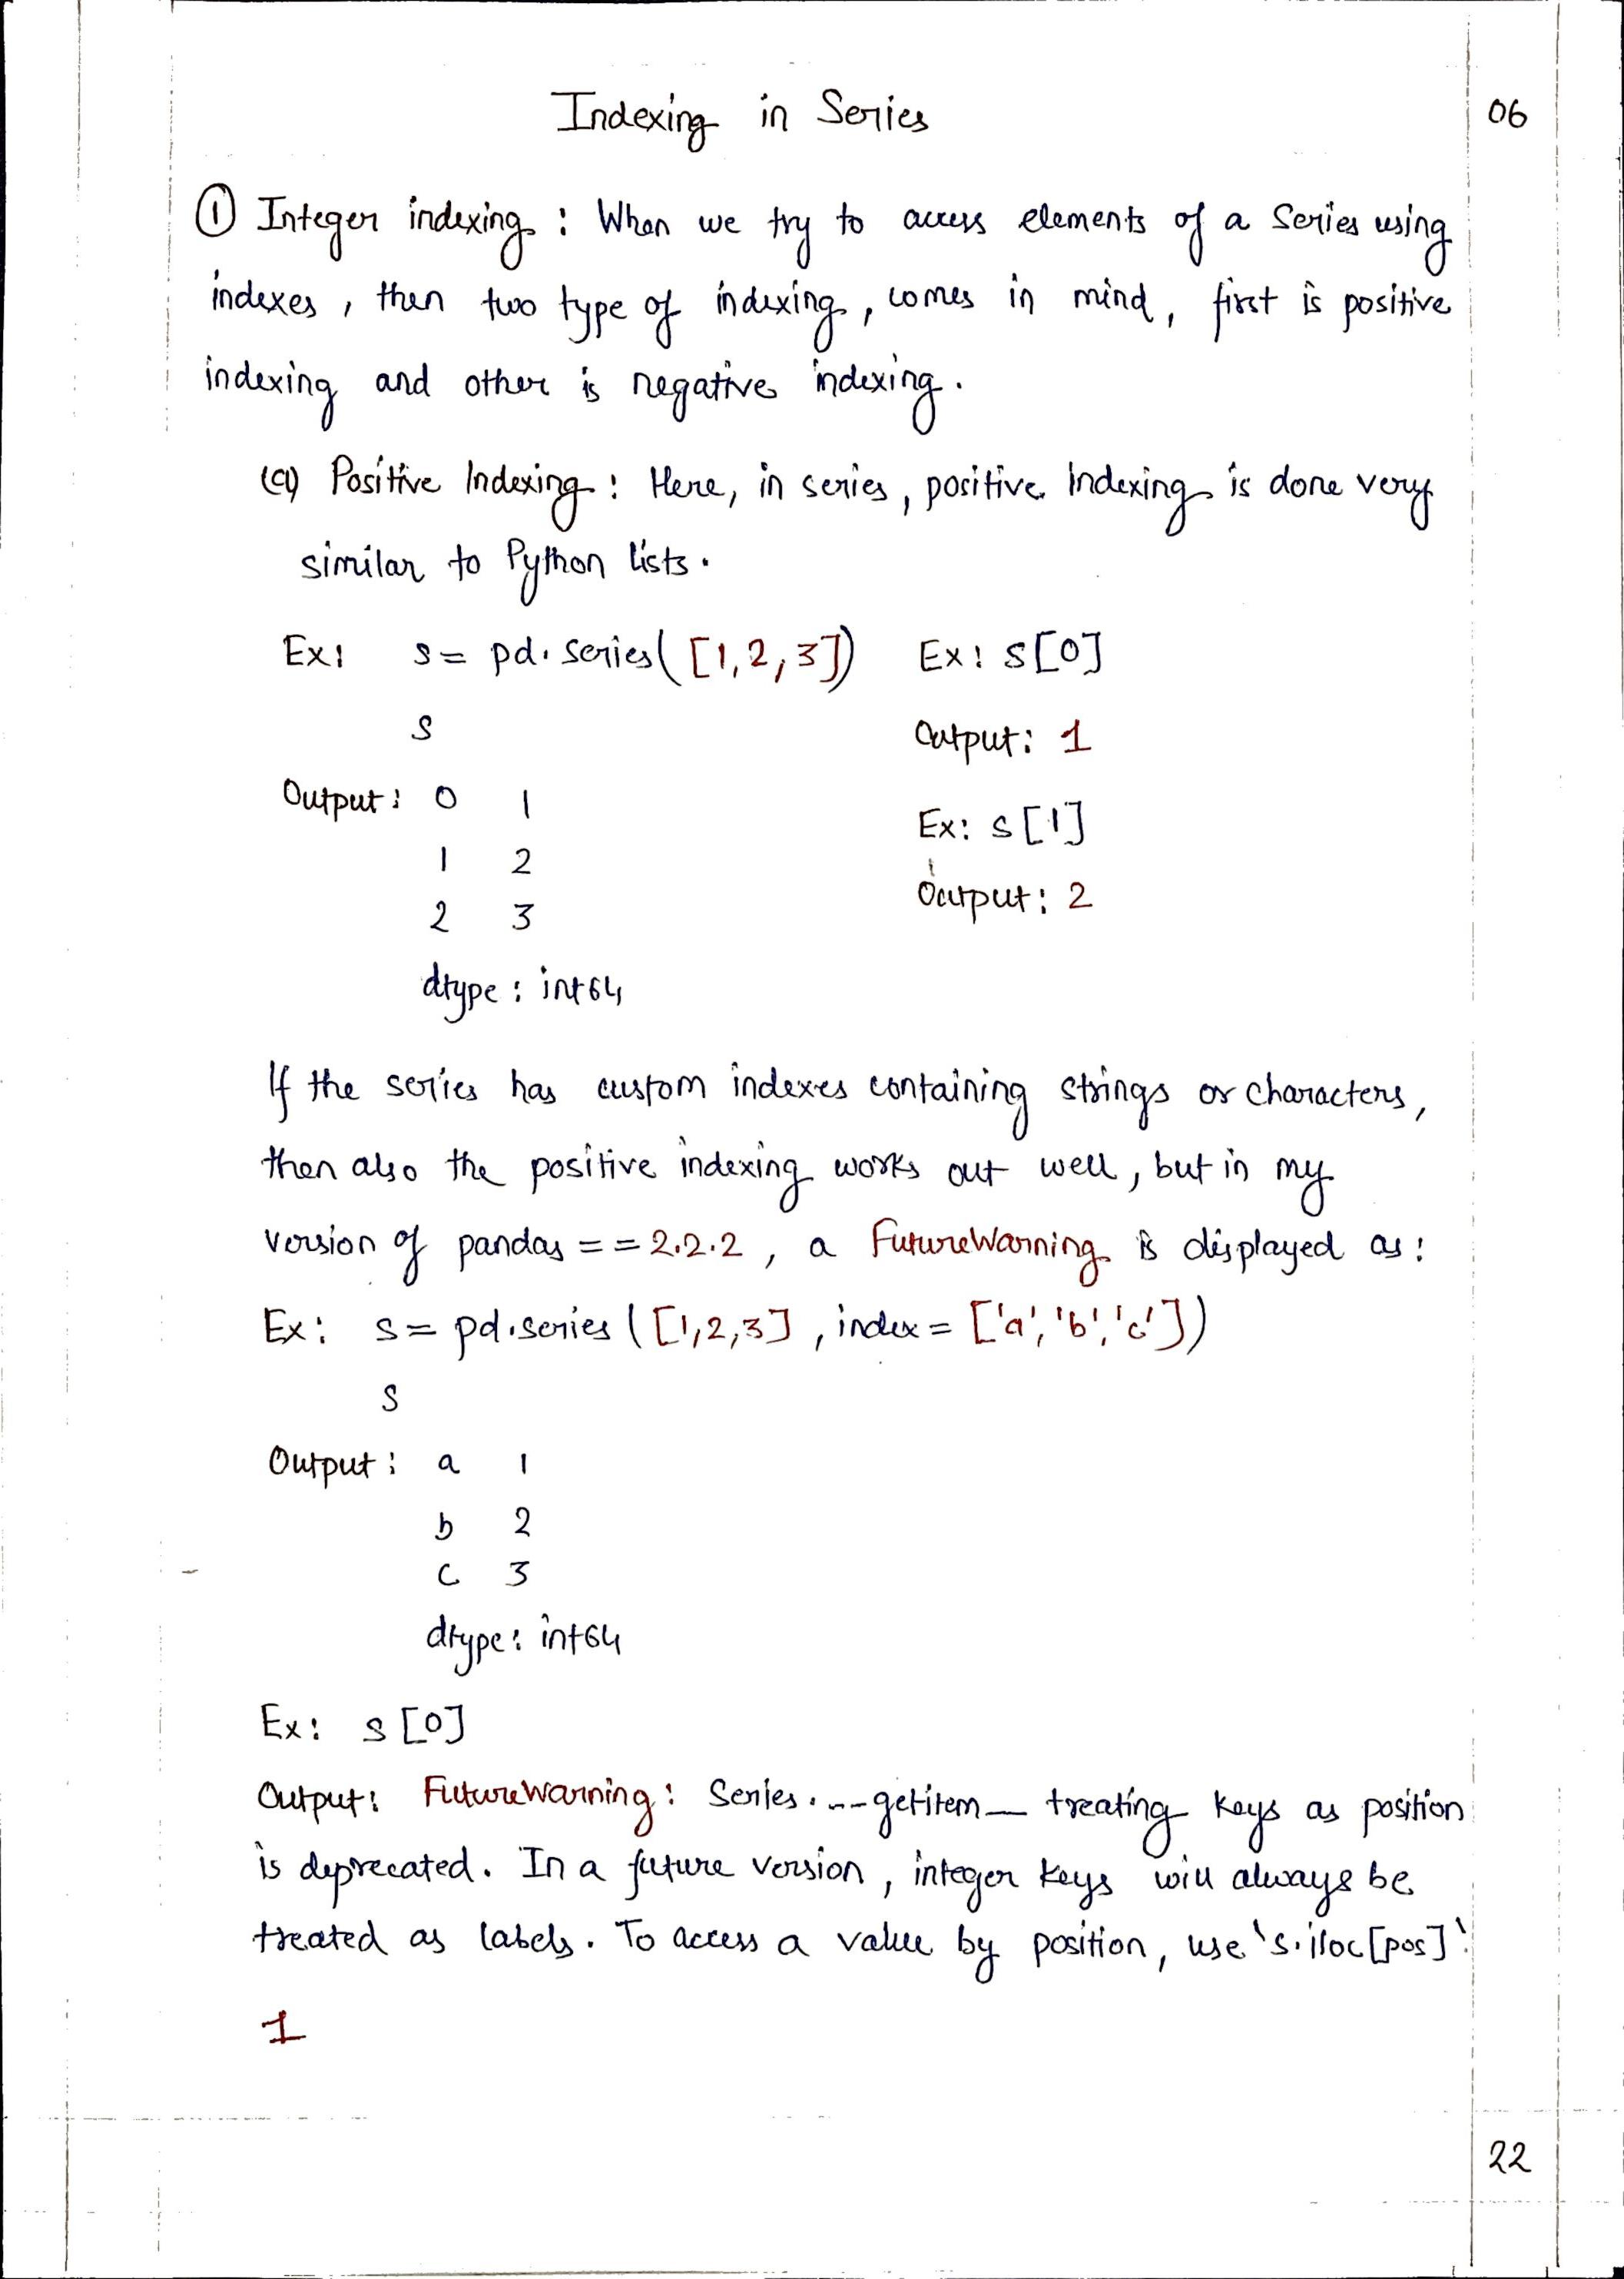 Indexing in Series
06
① Integer indexing : When we try to access elements of a Series using
indexes , then two type of indexing , comes in mind , first is positive
indexing and other is negative indexing .
(a) Positive Indexing : Here, in series , positive Indexing is done very
similar to Python lists .
Ex: s = pd.series([1,2,3]) Ex: s[0]
s Output: 1
Output: 0 1 Ex: s[1]
1 2 Output: 2
2 3
dtype : int64
If the series has custom indexes containing strings or characters,
then also the positive indexing works out well , but in my
version of pandas == 2.2.2 , a FutureWarning is displayed as :
Ex: s = pd.series ([1,2,3] , index = ['a','b','c'])
s
Output : a 1
b 2
c 3
dtype : int64
Ex: s [0]
Output: FutureWarning : Series.__getitem__ treating keys as position
is deprecated . In a future version , integer keys will always be
treated as labels . To access a value by position, use `s.iloc[pos]`
1
22